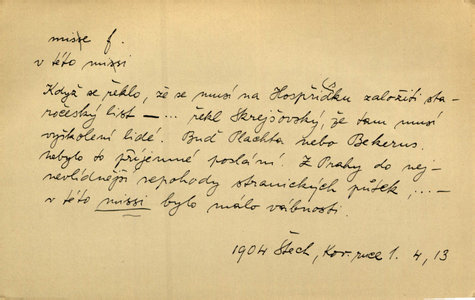 misse f.
v této missi
Když se řeklo, že se musí na Hospříďku založiti sta-
ročeský list – ... řekl Skrejšovský, že tam musí
vyškolení lidé. Buď Plachta nebo Bekerus.
nebylo to příjemné poslání. Z Prahy do nej-
nevlídnější nepohody stranických půtek, ... –
v této missi bylo málo vábnosti.
1904 Štech, Kor. 1. 4, 13